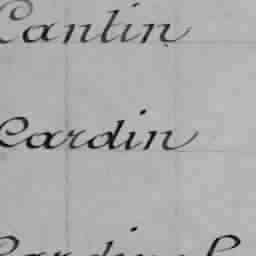 Cantin
Cardin